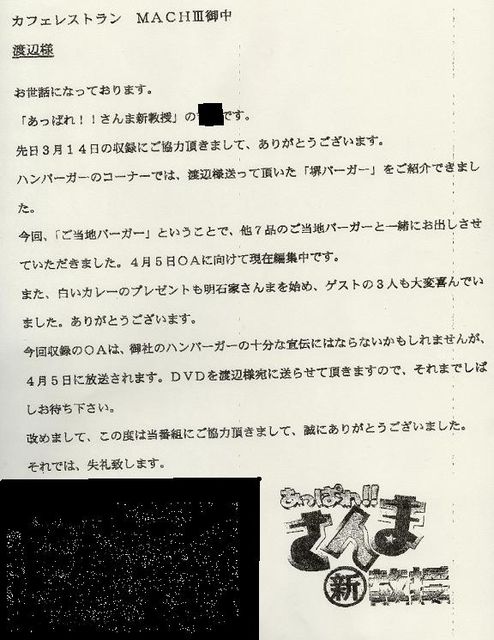 カフェレストラン　MACHⅢ御中
渡辺様
お世話になっております。
「あっぱれ！！さんま新教授」の　です。
先日３月１４日の収録にご協力頂きまして、ありがとうございます。
ハンバーガーのコーナーでは、渡辺様送って頂いた「堺バーガー」をご紹介できまし
た。
今回、「ご当地バーガー」ということで、他７品のご当地バーガーと一緒にお出しさせ
ていただきました。４月５日ＯＡに向けて現在編集中です。
また、白いカレーのプレゼントも明石家さんまを始め、ゲストの３人も大変喜んでい
ました。ありがとうございます。
今回収録のＯＡは、御社のハンバーガーの十分な宣伝にはならないかもしれませんが、
４月５日に放送されます。ＤＶＤを渡辺様宛に送らせて頂きますので、それまでしば
しお待ち下さい。
改めまして、この度は当番組にご協力頂きまして、誠にありがとうございました。
それでは、失礼致します。
あっぱれ!!
さんま
新教授